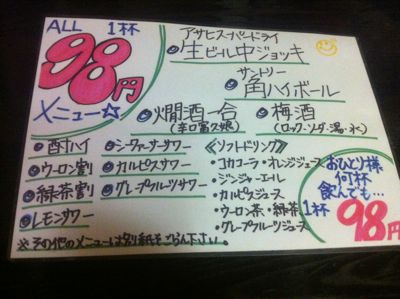 ALL 1杯
98円
メニュー☆
アサヒスーパードライ
●生ビール中ジョッキ
サントリー
●角ハイボール
●燗酒一合
(辛口富久娘)
●梅酒
(ロック・ソーダ・湯・水)
●酎ハイ
●ウーロン割
●緑茶割
●レモンサワー
●シークァーサーサワー
●カルピスサワー
●グレープフルーツサワー
《ソフトドリンク》
・コカコーラ・オレンジジュース
・ジンジャーエール
・カルピスジュース
・ウーロン茶・緑茶
・グレープフルーツジュース
おひとり様
何杯
飲んでも…
1杯 98円
※その他のメニューは別紙をごらん下さい。